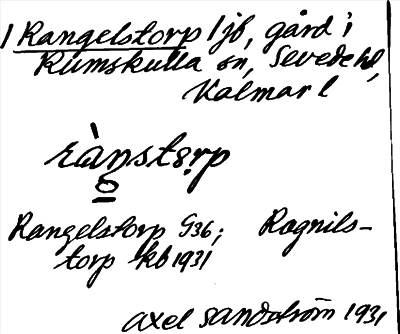 1 Rangelstorp 1 jb, gård i
Rumskulla sn, Sevede hd,
Kalmar l
ràn̲storp
Rangelstorp G36; Ragnils-
torp kb 1931
Axel Sandström 1931